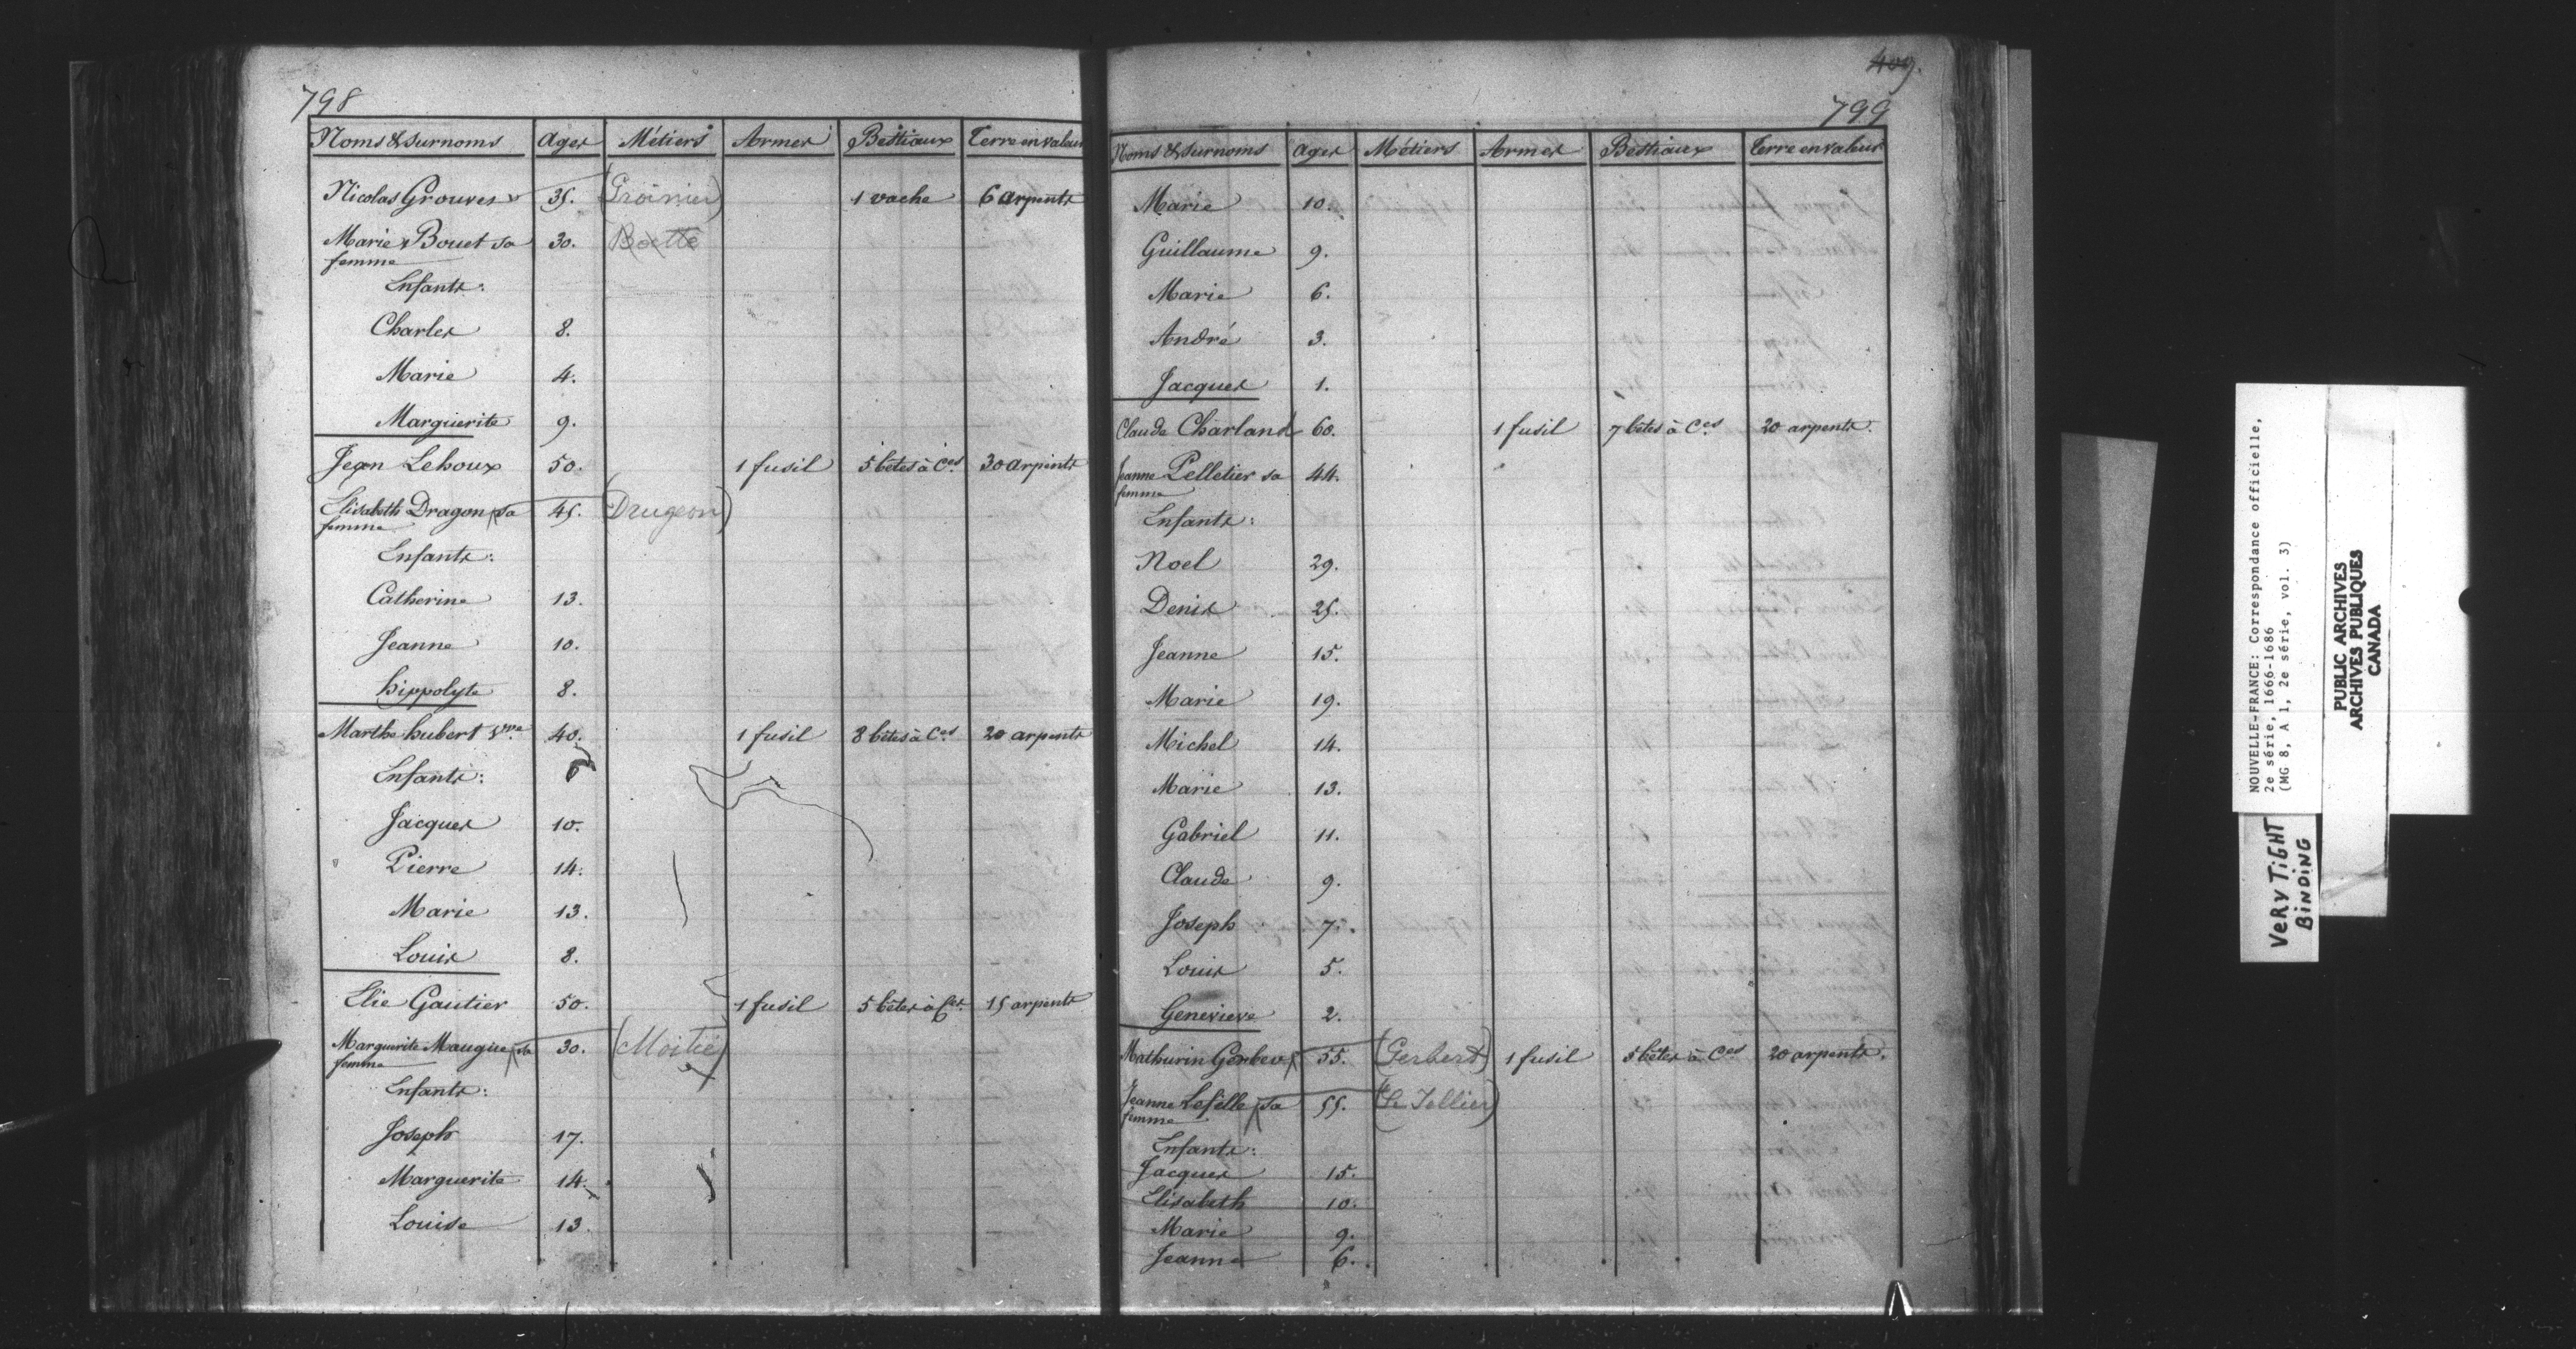 798
Noms & surnoms Ages Métiers Armes Bestiaux Terre en valeur
Nicolas Grouver 35. 1 vache 6 arpents
Marie Bouet sa 30. Boette
femme
Enfants:
Charles 8.
Marie 4.
Marguerite 9.
Jean Lehoux 50. 1 fusil 5 bêtes à Ces 30 arpents
Elisabeth Dragon sa 45. (Drugeon)
femme
Enfants:
Catherine 13.
Jeanne 10.
hippolyte 8.
Marthe hubert vve 40. 1 fusil 8 bêtes à Ces 20 arpents
Enfants:
Jacques 10.
Pierre 14.
Marie 13.
Louis 8.
Elie Gautier 50. 1 fusil 5 bêtes à Ces 15 arpents
Marguerite Maugue sa 30. (Moitié)
femme
Enfants:
Joseph 17.
Marguerite 14.
Louise 13.
409.
799
Noms & surnoms Ages Métiers Armes Bestiaux Terre en valeur
Marie 10.
Guillaume 9.
Marie 6.
André 3.
Jacques 1.
Claude Charland 60. 1 fusil 7 bêtes à Ces 20 arpents.
Jeanne Pelletier sa 44.
femme
Enfants:
Noel 29.
Denis 25.
Jeanne 15.
Marie 19.
Michel 14.
Marie 13.
Gabriel 11.
Claude 9.
Joseph 7.
Louis 5.
Genevieve 2.
Mathurin Gerbev 55. (Gerbert) 1 fusil 5 bêtes à Ces 20 arpents.
Jeanne Lefelle sa 55. (Le Tellier)
femme
Enfants:
Jacques 15.
Elisabeth 10.
Marie 9.
Jeanne 6.
NOUVELLE-FRANCE: Correspondance officielle,
2e série, 1666-1686
(MG 8, A 1, 2e série, vol. 3)
PUBLIC ARCHIVES
ARCHIVES PUBLIQUES
CANADA
VERY TIGHT
BINDING